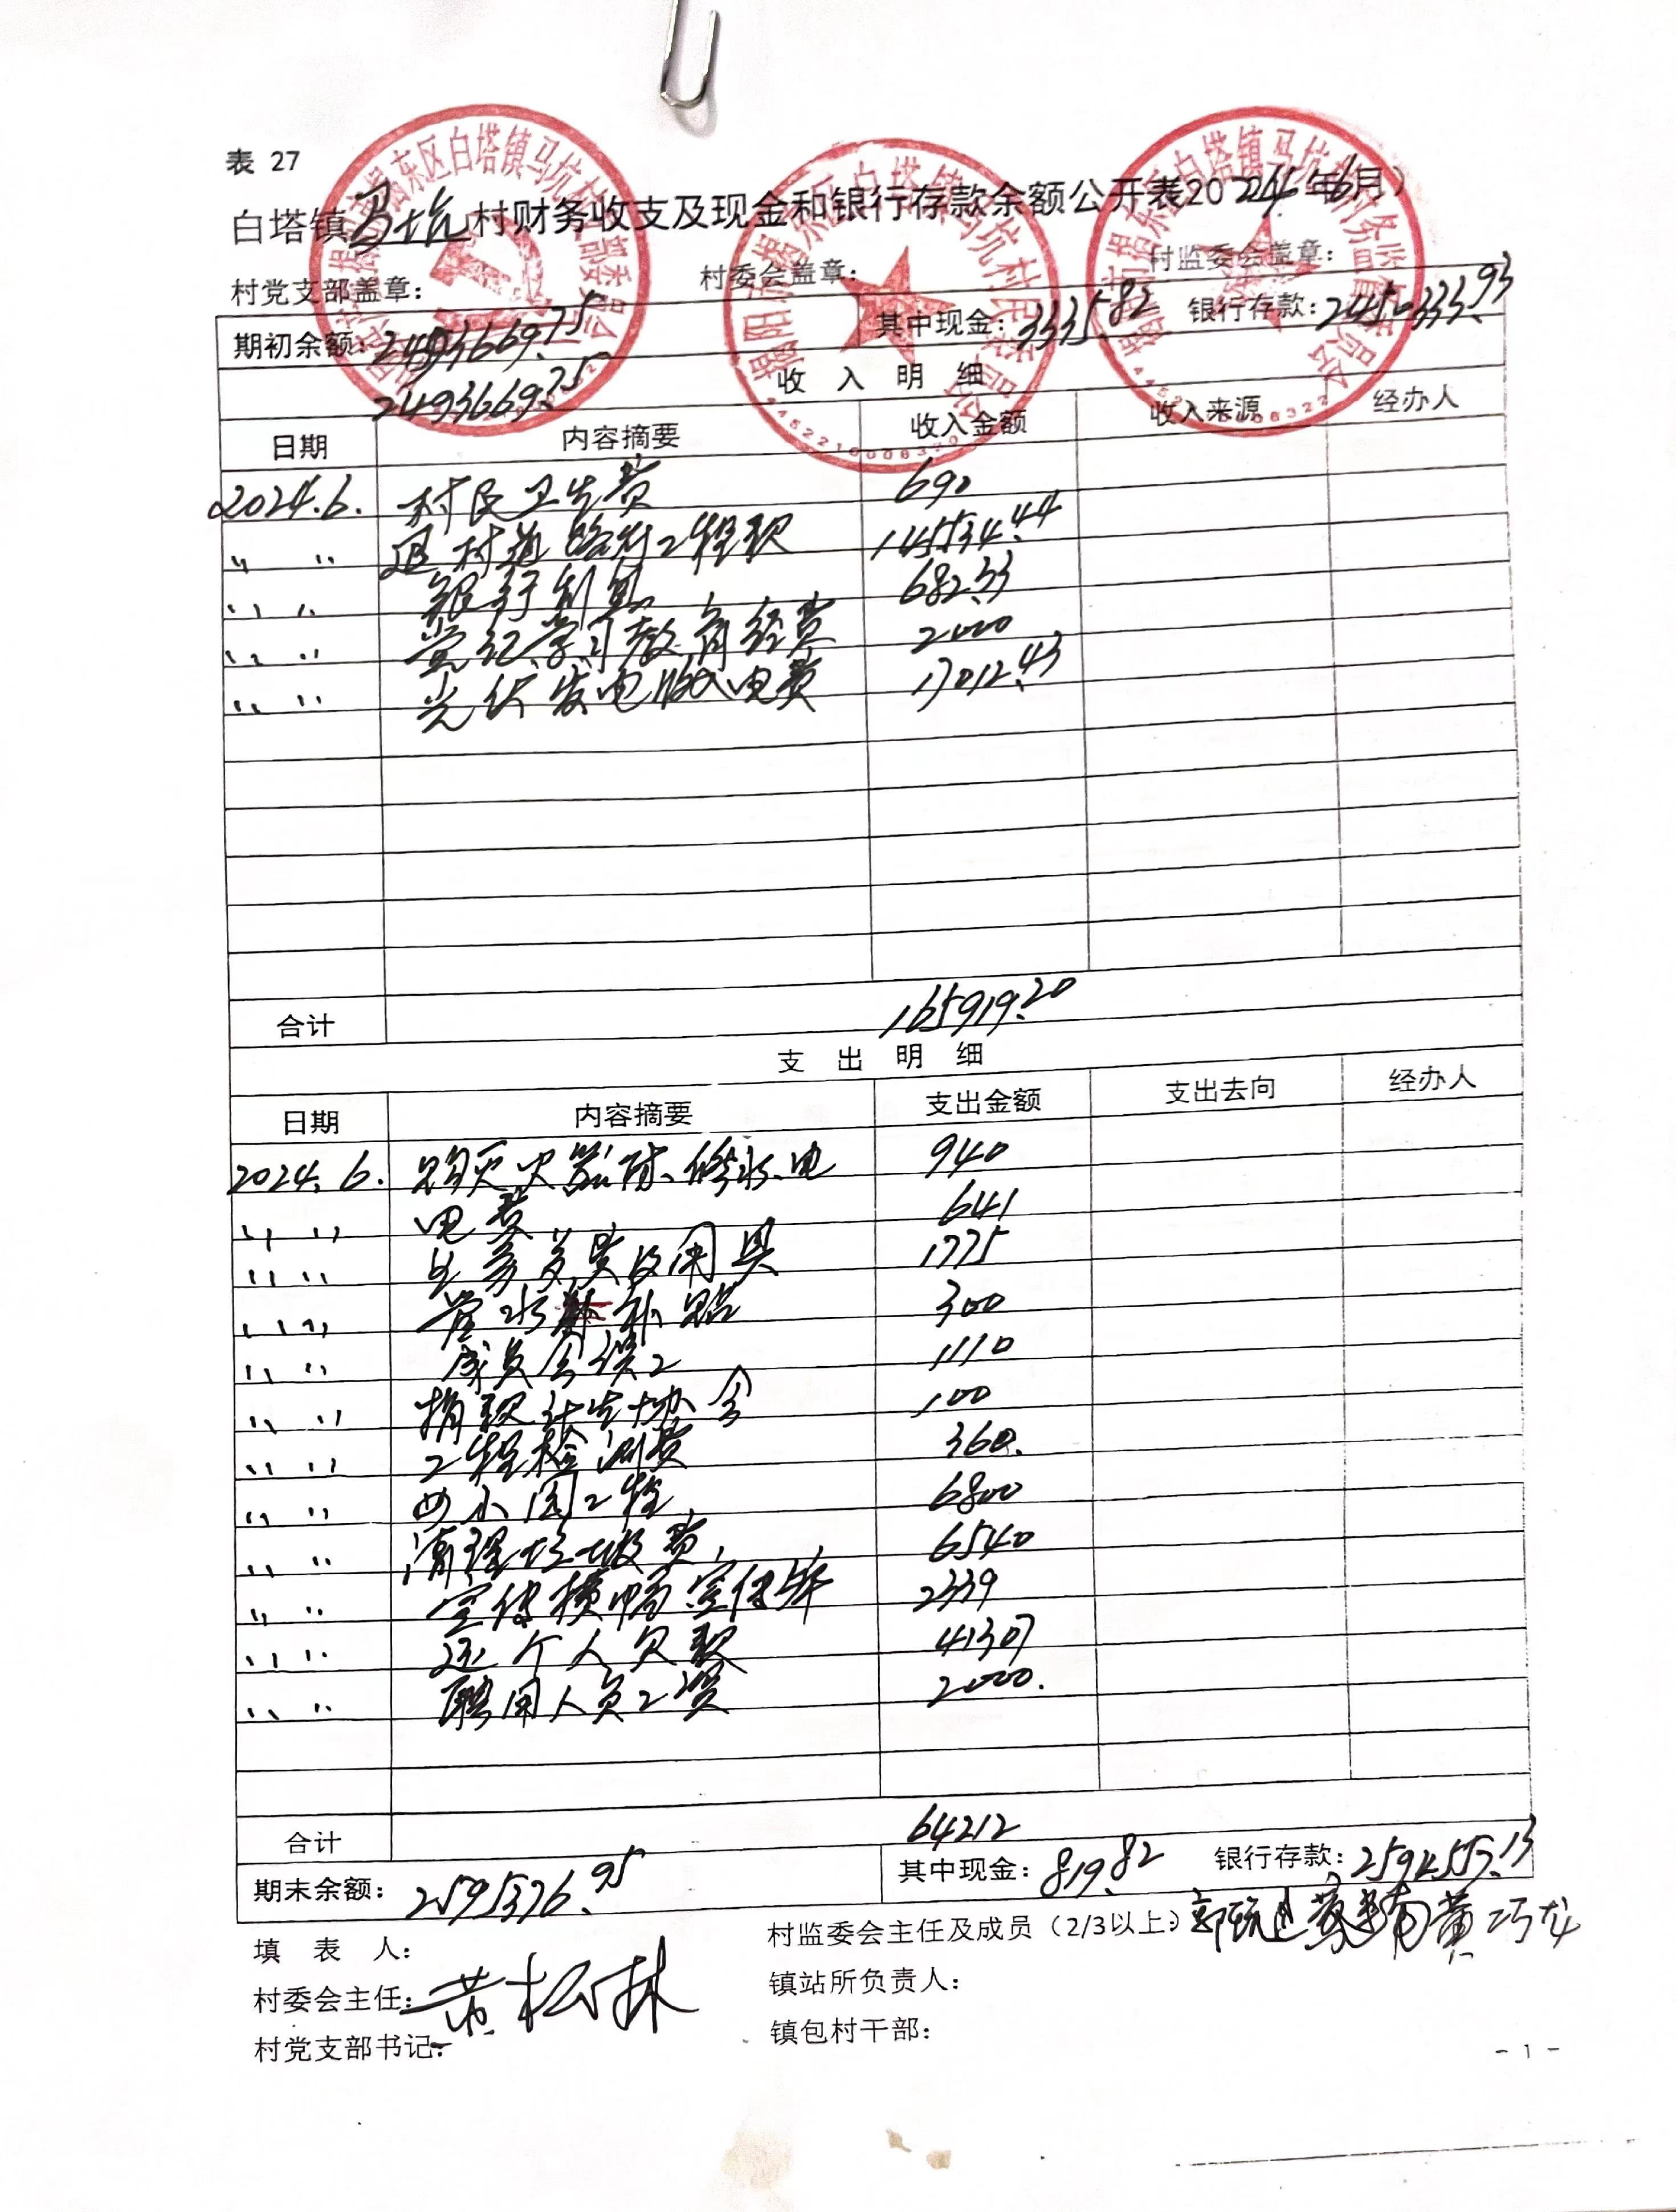 表 27
白塔镇马坑村财务收支及现金和银行存款余额公开表2024年6月）
村党支部盖章： 村委会盖章： 村监委会盖章：
期初余额：2493669.75 其中现金：3335.82 银行存款：2490333.93
2493669.75
收 入 明 细
日期 内容摘要 收入金额 收入来源 经办人
2024.6. 村民卫生费 690
〃 〃 退村道路灯工程款 145534.44
〃 〃 银行利息 682.33
〃 〃 党纪学习教育经费 2000
〃 〃 光伏发电收电费 17012.43
合计 165919.20
支 出 明 细
日期 内容摘要 支出金额 支出去向 经办人
2024.6. 购灭火器材、修水电 940
〃 〃 电费 641
〃 〃 生务费及用具 1775
〃 〃 管水补贴 300
〃 〃 成员会误工 1110
〃 〃 捐款计生协会 100
〃 〃 工程检测费 360.
〃 〃 四小园工程 6800
〃 〃 清理垃圾费 6540
〃 〃 宣传横幅宣传牌 2339
〃 〃 还个人欠款 41307
〃 〃 聘用人员工资 2000.
合计 64212
期末余额：2595376.95 其中现金：819.82 银行存款：2594557.13
填 表 人： 村监委会主任及成员（2/3以上）： 黄巧龙
村委会主任：黄松林 镇站所负责人：
村党支部书记： 镇包村干部：
- 1 -